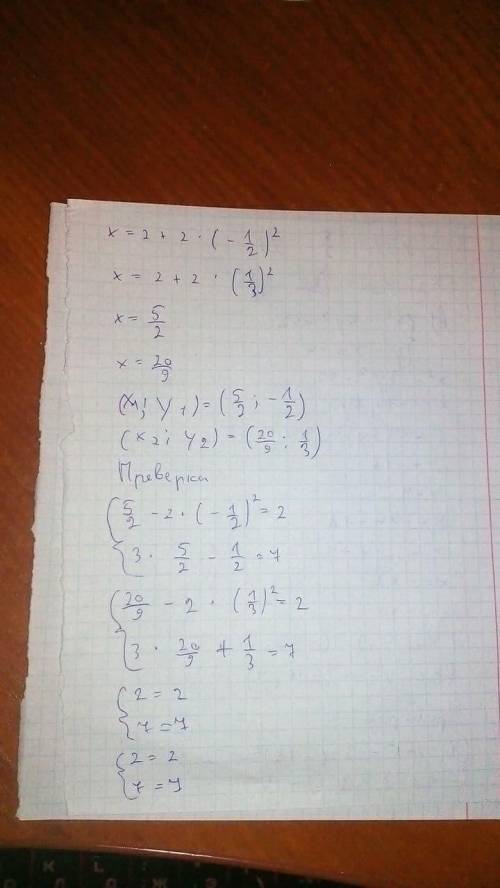 x = 2 + 2 · (- 1/2)²
x = 2 + 2 · (1/3)²
x = 5/2
x = 20/9
(x₁; y₁) = (5/2; - 1/2)
(x₂; y₂) = (20/9; 1/3)
Проверка
{ 5/2 - 2 · (- 1/2)² = 2
3 · 5/2 - 1/2 = 7
{ 20/9 - 2 · (1/3)² = 2
3 · 20/9 + 1/3 = 7
{ 2 = 2
7 = 7
{ 2 = 2
7 = 7